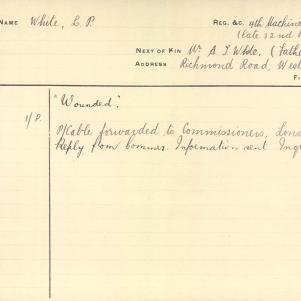 NAME White, L. P.
REG. &C. 4th Machine
(late 32nd
NEXT OF KIN Mr. A. J. White. (Fathe
ADDRESS Richmond Road, West
"Wounded".
1/P. P/Cable forwarded to Commissioners, Lond
Reply from Commrs. Information sent Inq